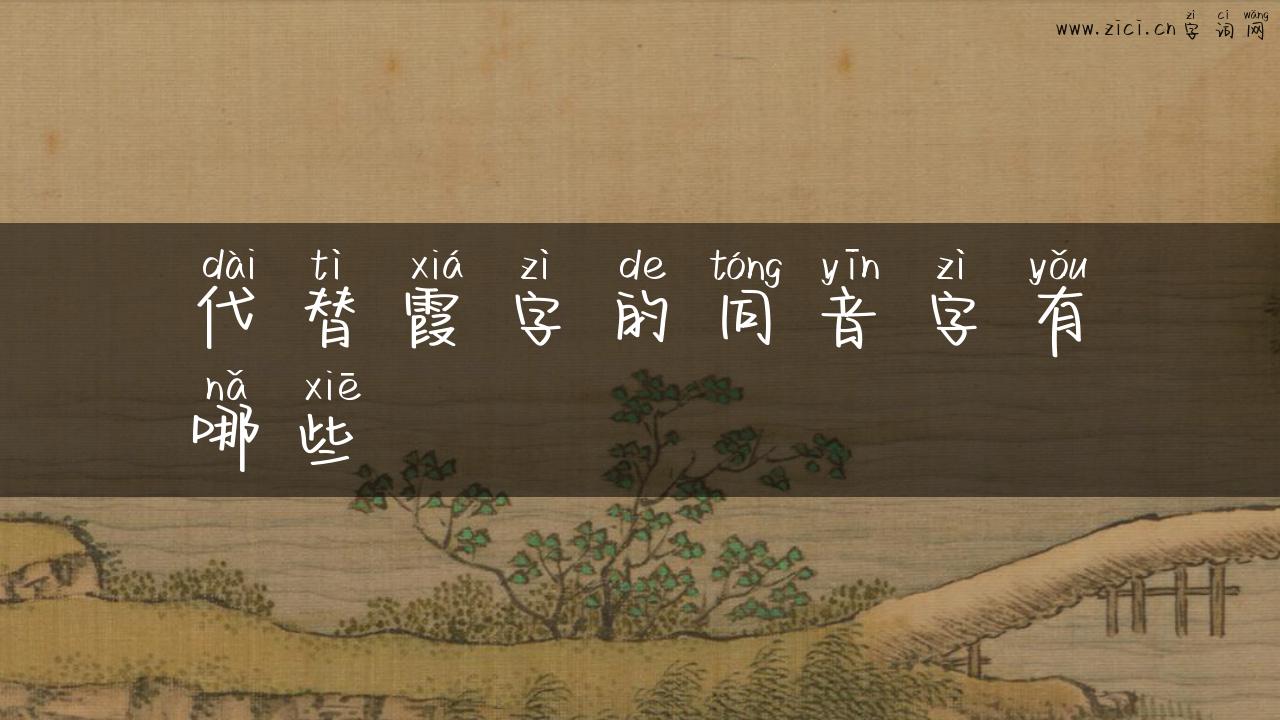 zì cí wǎng
www.zici.cn 字词网
dài tì xiá zì de tóng yīn zì yǒu
代替霞字的同音字有
nǎ xiē
哪些